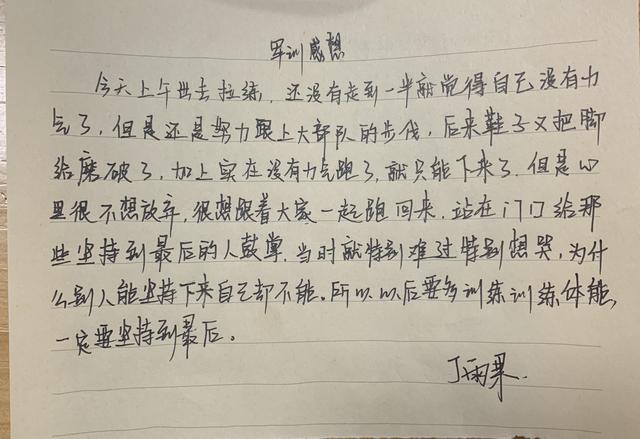 军训感想
今天上午出去拉练，还没有走到一半就觉得自己没有力
气了，但是还是努力跟上大部队的步伐，后来鞋子又把脚
给磨破了，加上实在没有力气跑了，就只能下来了。但是心
里很不想放弃，很想跟着大家一起跑回来，站在门口给那
些坚持到最后的人鼓掌，当时就特别难过特别想哭，为什
么别人能坚持下来自己却不能。所以以后要多训练训练体能，
一定要坚持到最后。
丁雨果